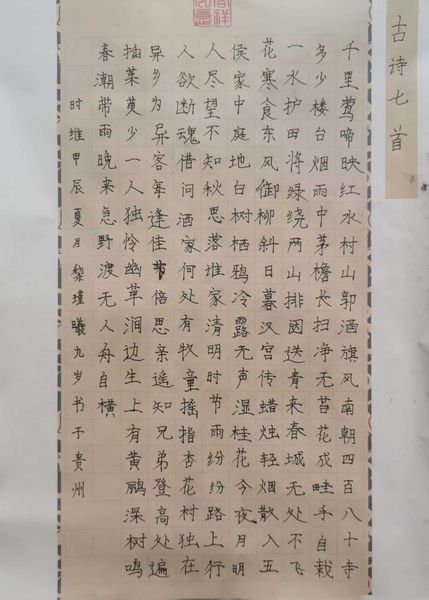 古诗七首
千里莺啼映红水村山郭酒旗风南朝四百八十寺
多少楼台烟雨中茅檐长扫净无苔花成畦手自栽
一水护田将绿绕两山排闼送青来春城无处不飞
花寒食东风御柳斜日暮汉宫传蜡烛轻烟散入五
侯家中庭地白树栖鸦冷露无声湿桂花今夜月明
人尽望不知秋思落谁家清明时节雨纷纷路上行
人欲断魂借问酒家何处有牧童摇指杏花村独在
异乡为异客每逢佳节倍思亲遥知兄弟登高处遍
插茱萸少一人独怜幽草涧边生上有黄鹂深树鸣
春潮带雨晚来急野渡无人舟自横
时维甲辰夏月黎瑾曦九岁书于贵州